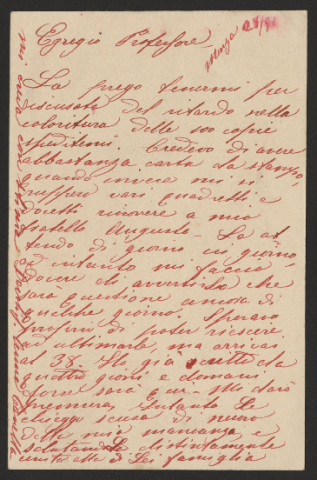 Egregio Professore,
Monza 28/96
La prego tenermi per
iscusato del ritardo nella
coloritura delle 100 copie
speditemi. Credevo di avere
abbastanza carta da stampo,
quando invece mi si
ruppero vari quadretti e
dovetti ricorere a mio
fratello Augusto. La at
tendo di giorno in giorno,
ed intanto mi faccio
dovere di avvertirla che
sarà questione ancora di
qualche giorno. Speravo
proprio di poter riescire
ad ultimarle, ma arrivai
al 38. Ho già scritto da
quattro giorni e domani
forse sarà qui. Mi darò
premura, intanto Le
chieggo scusa di nuovo
della mia mancanza e
salutandoLa distintamente
unita alla di Lei famiglia
mi creda